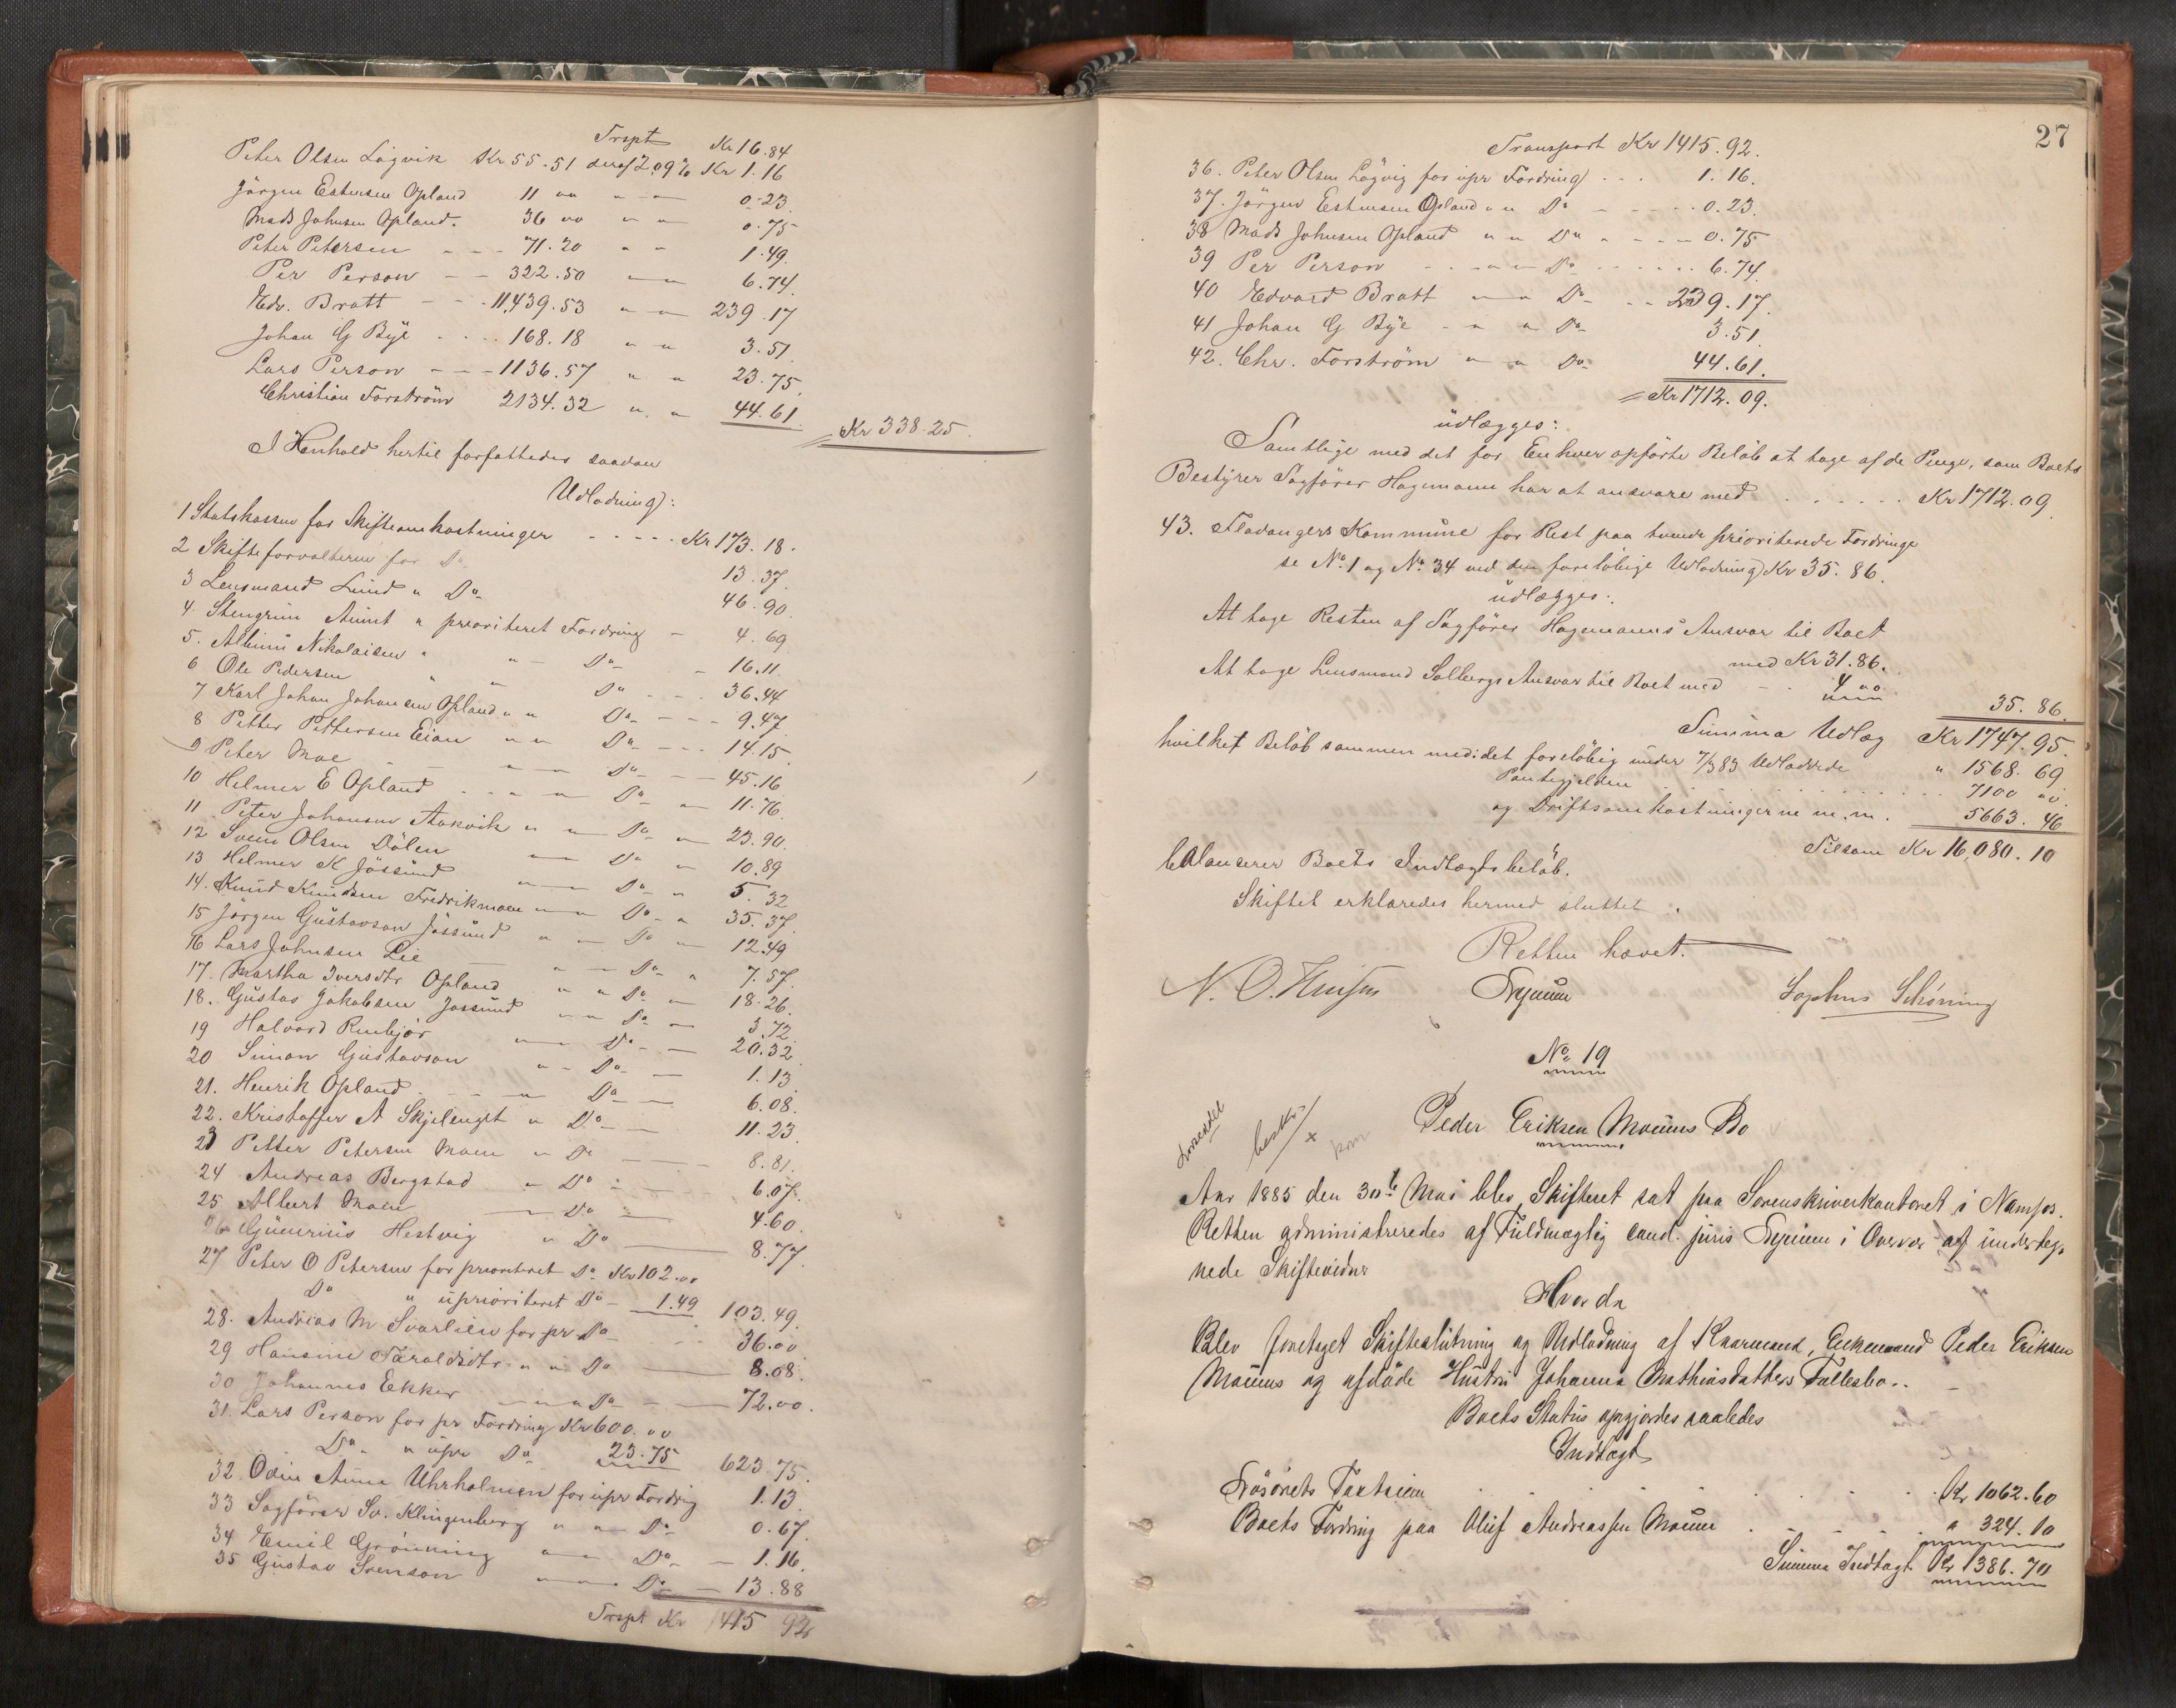 Trspt Kr 16.84
Peter Olsen Lögvik Kr 55.51 deraf 2,09 % Kr 1.16
Jörgen Estensen Opland 11 00 " — 0.23
Mads Johnsen Opland. 36 00 " " 0.75
Peter Petersen - - - 71.20 " " 1.49.
Per Person - - 322.50 " — 6.74.
Edv. Bratt - - - 11,439.53 " — 239.17
Johan G Bye - - - 168.18 " " 3.51.
Lars Person - - - 1136.57 " " 23.75
Christian Forström 2134.32 " " 44.61.
Kr 338.25
I Henhold hertil forfattedes saadan
Udlodning:
1 Statskassen for Skifteomkostninger - - - - - Kr 173.18.
2 Skifteforvalteren for Do 13.37.
3 Lensmand Lund " Do 46.90
4. Stengrim Aunet " prioriteret Fordring - 4.69
5. Albinus Nikolaisen " " Do - 16.11.
6 Ole Pedersen " " Do - - - 36.44
7 Karl Johan Johansen Opland " " Do - - - 9.47
8 Petter Pettersen Eian " " Do - - - 14.15
9 Peter Moe - - " — Do - - 45.16
10 Helmer E Opland - - - " — Do - 11.76.
11 Peter Johansen Aakvik " " Do " 23.90.
12 Svend Olsen Dölen — Do " 10.89
13 Helmer K Jössund " — Do " 5.32
14. Knud Knudsen Fredrikmoen " — Do " 35.37.
15 Jörgen Gustavson Jössund " — Do " 12.49
16 Lars Johnsen Lie — " — Do " 7.57.
17. Martha Iversdtr Opland " " Do — 18.26.
18. Gustav Jakobsen Jössund " " Do — 3.72
19 Halvard Rinbjör — Do - — 20.32
20 Simon Gustavson " - Do — 1.13
21. Henrik Opland - - - — Do — 6.08.
22. Kristoffer A Skjelenget " Do — 11.23.
23 Petter Petersen Moen " Do — 8.81.
24 Andreas Bergstad " Do - — 6.07.
25 Albert Moen — Do — 4.60.
26 Gunerius Hestvig " Do — 8.77.
27 Peter O Petersen for prioriteret Do Kr 102.00
Do " uprioriteret Do - 1.49 103.49.
28. Andreas M Svarlien for pr. Do 36.00
29 Hansine Taraldsdtr " " Do — 8.08.
30 Johannes Ekker — " " Do — 72.00.
31. Lars Person for pr Fordring Kr 600.00
Do " upr Do 23.75 623.75.
32 Odin Anna Uhrholmen for upr Fordrig 1.13
33 Sagförer Sv. Klingenberg " " Do 0.67.
34 Emil Grönning " — Do - 1.16
35 Gustav Svenson — Do - 13.88
Trspt Kr 1415 92
27
Transport Kr 1415.92.
36. Peter Olsen Lögvig for upr Fordring - - - 1.16.
37. Jörgen Estensen Opland " " Do - - - - 0.23.
38 Mads Johnsen Opland " " Do " - - - 0.75
39 Per Person - - - " — Do - - - - - 6.74.
40 Edvard Bratt — " Do - - 239.17.
41 Johan G Bye - " " Do 3.51.
42. Chr. Forström " " Do 44.61.
Kr 1712.09.
udlægges:
Samtlige med det for Enhver opförte Belöb at tage af de Penge, som Boets
Bestyrer Sagförer Hagemann har at ansvare med - - - - - - Kr 1712.09.
43. Fladangers Kommune for Rest paa tvende prioriterede Fordringe
se No 1 og No 34 ved den forelöbige Udlodning Kr 35.86.
udlægges:
At tage Resten af Sagförer Hagemanns Ansvar til Boet
med Kr 31.86.
At tage Lensmand Solbergs Ansvar til Boet med - - 4 00
35.86.
Summa Udlæg Kr 1747.95.
hvilket Belöb sammen med det forelöbig under 7/3 83 Udlodede " 1568.69
Pantegjelden - - - - - - - - - - - 7100 00
og Driftsomkostningerne m.m. 5663.46
Tilsam Kr 16,080.10
balanserer Boets Indtægtsbelöb.
Skiftet erklæredes hermed sluttet.
Retten hævet.
Sophus Schöning
No 19
Peder Eriksen Moums Bo
Aar 1885 den 30te Mai blev Skifteret sat paa Sorenskriverkontoret i Namsos.
Retten administreredes af Fuldmægtig cand. juris Nyeum i Overvær af underteg-
nede Skiftevidner
Hvorda
Blev foretaget Skifteslutning og Udlodning af Kaarmand, Enkemand Peder Eriksen
Moums og afdöde Hustru Johanna Mathiasdatters Fællesbo..
Boets Status opgjordes saaledes
Indtægt
Lösörets Taxtsum - - - - - - - - - Kr 1062.60
Boets Fordring paa Oluf Andreassen Moum - - - - - " 324.10
Summa Indtægt Kr 1386.70